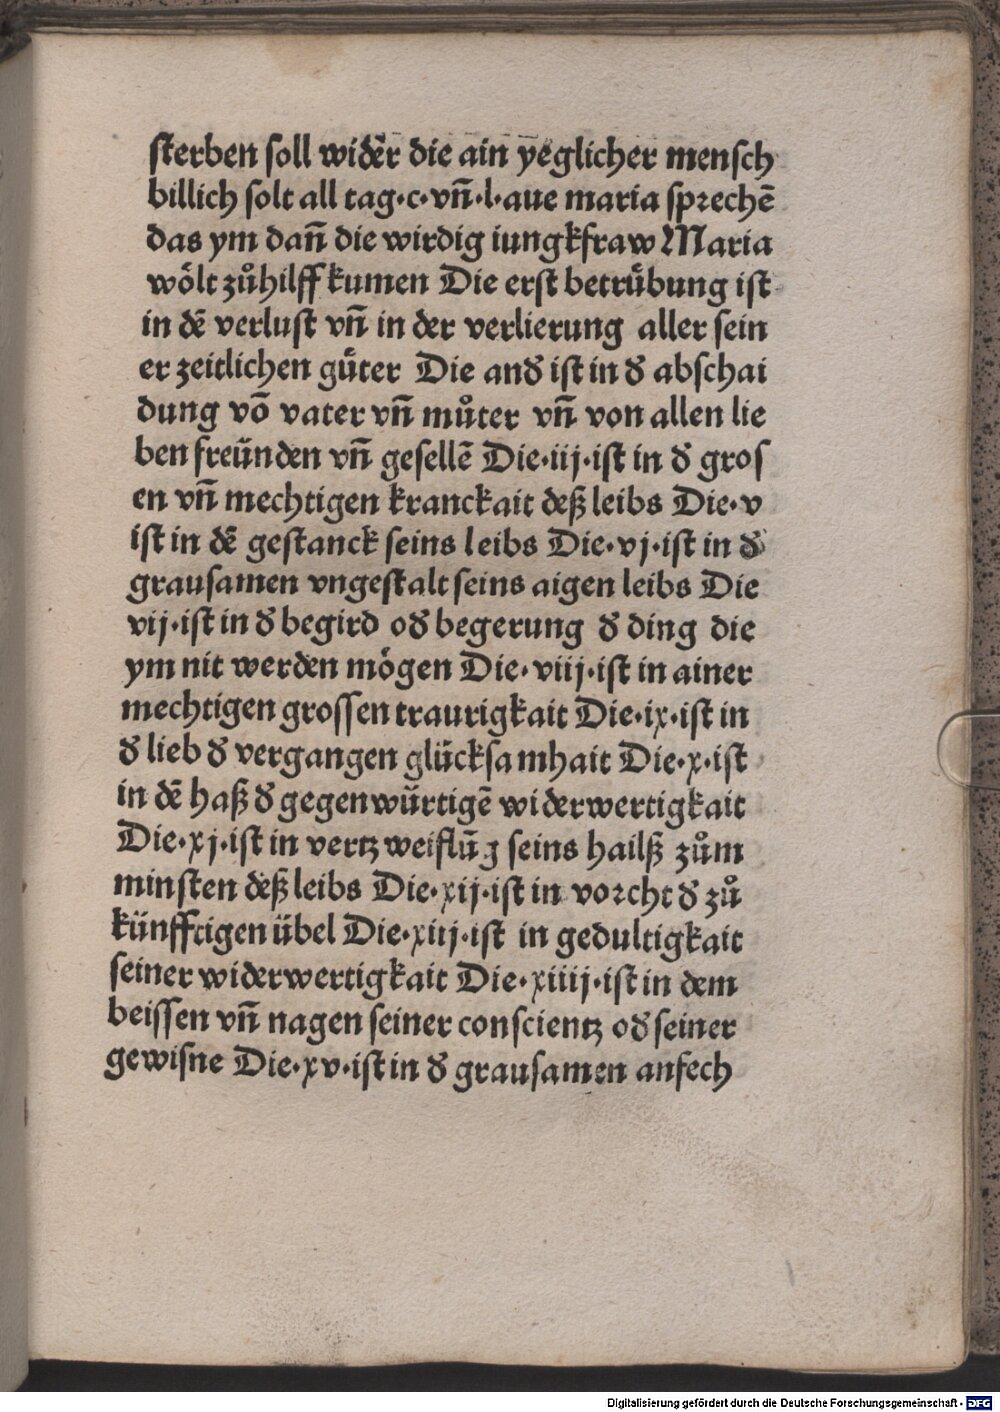 sterben soll wider die ain yeglicher mensch
billich solt all tag·c·vn̄·l·aue maria sprechē
das ym dan̄ die wirdig iungkfraw Maria
woͤlt zuͦhilff kumen Die erst betruͤbung ist
in dē verlust vn̄ in der verlierung aller sein
er zeitlichen guͤter Die and̕ ist in d̕ abschai
dung vō vater vn̄ muͦter vn̄ von allen lie
ben freünden vn̄ gesellē Die·iij·ist in d̕ gros
en vn̄ mechtigen kranckait deß leibs Die·v
ist in dē gestanck seins leibs Die·vj·ist in d̕
grausamen vngestalt seins aigen leibs Die
vij·ist in d̕ begird od̕ begerung d̕ ding die
ym nit werden moͤgen Die·viij·ist in ainer
mechtigen grossen traurigkait Die·ix·ist in
d̕ lieb d̕ vergangen glücksamhait Die·x·ist
in dē haß d̕ gegenwürtigē widerwertigkait
Die·xj·ist in vertzweiflūg seins hailß zuͦm
minsten deß leibs Die·xij·ist in vorcht d̕ zuͦ
künfftigen übel Die·xiij·ist in gedultigkait
seiner widerwertigkait Die·xiiij·ist in dem
beissen vn̄ nagen seiner conscientz od̕ seiner
gewisne Die·xv·ist in d̕ grausamen anfech
Digitalisierung gefördert durch die Deutsche Forschungsgemeinschaft - DFG